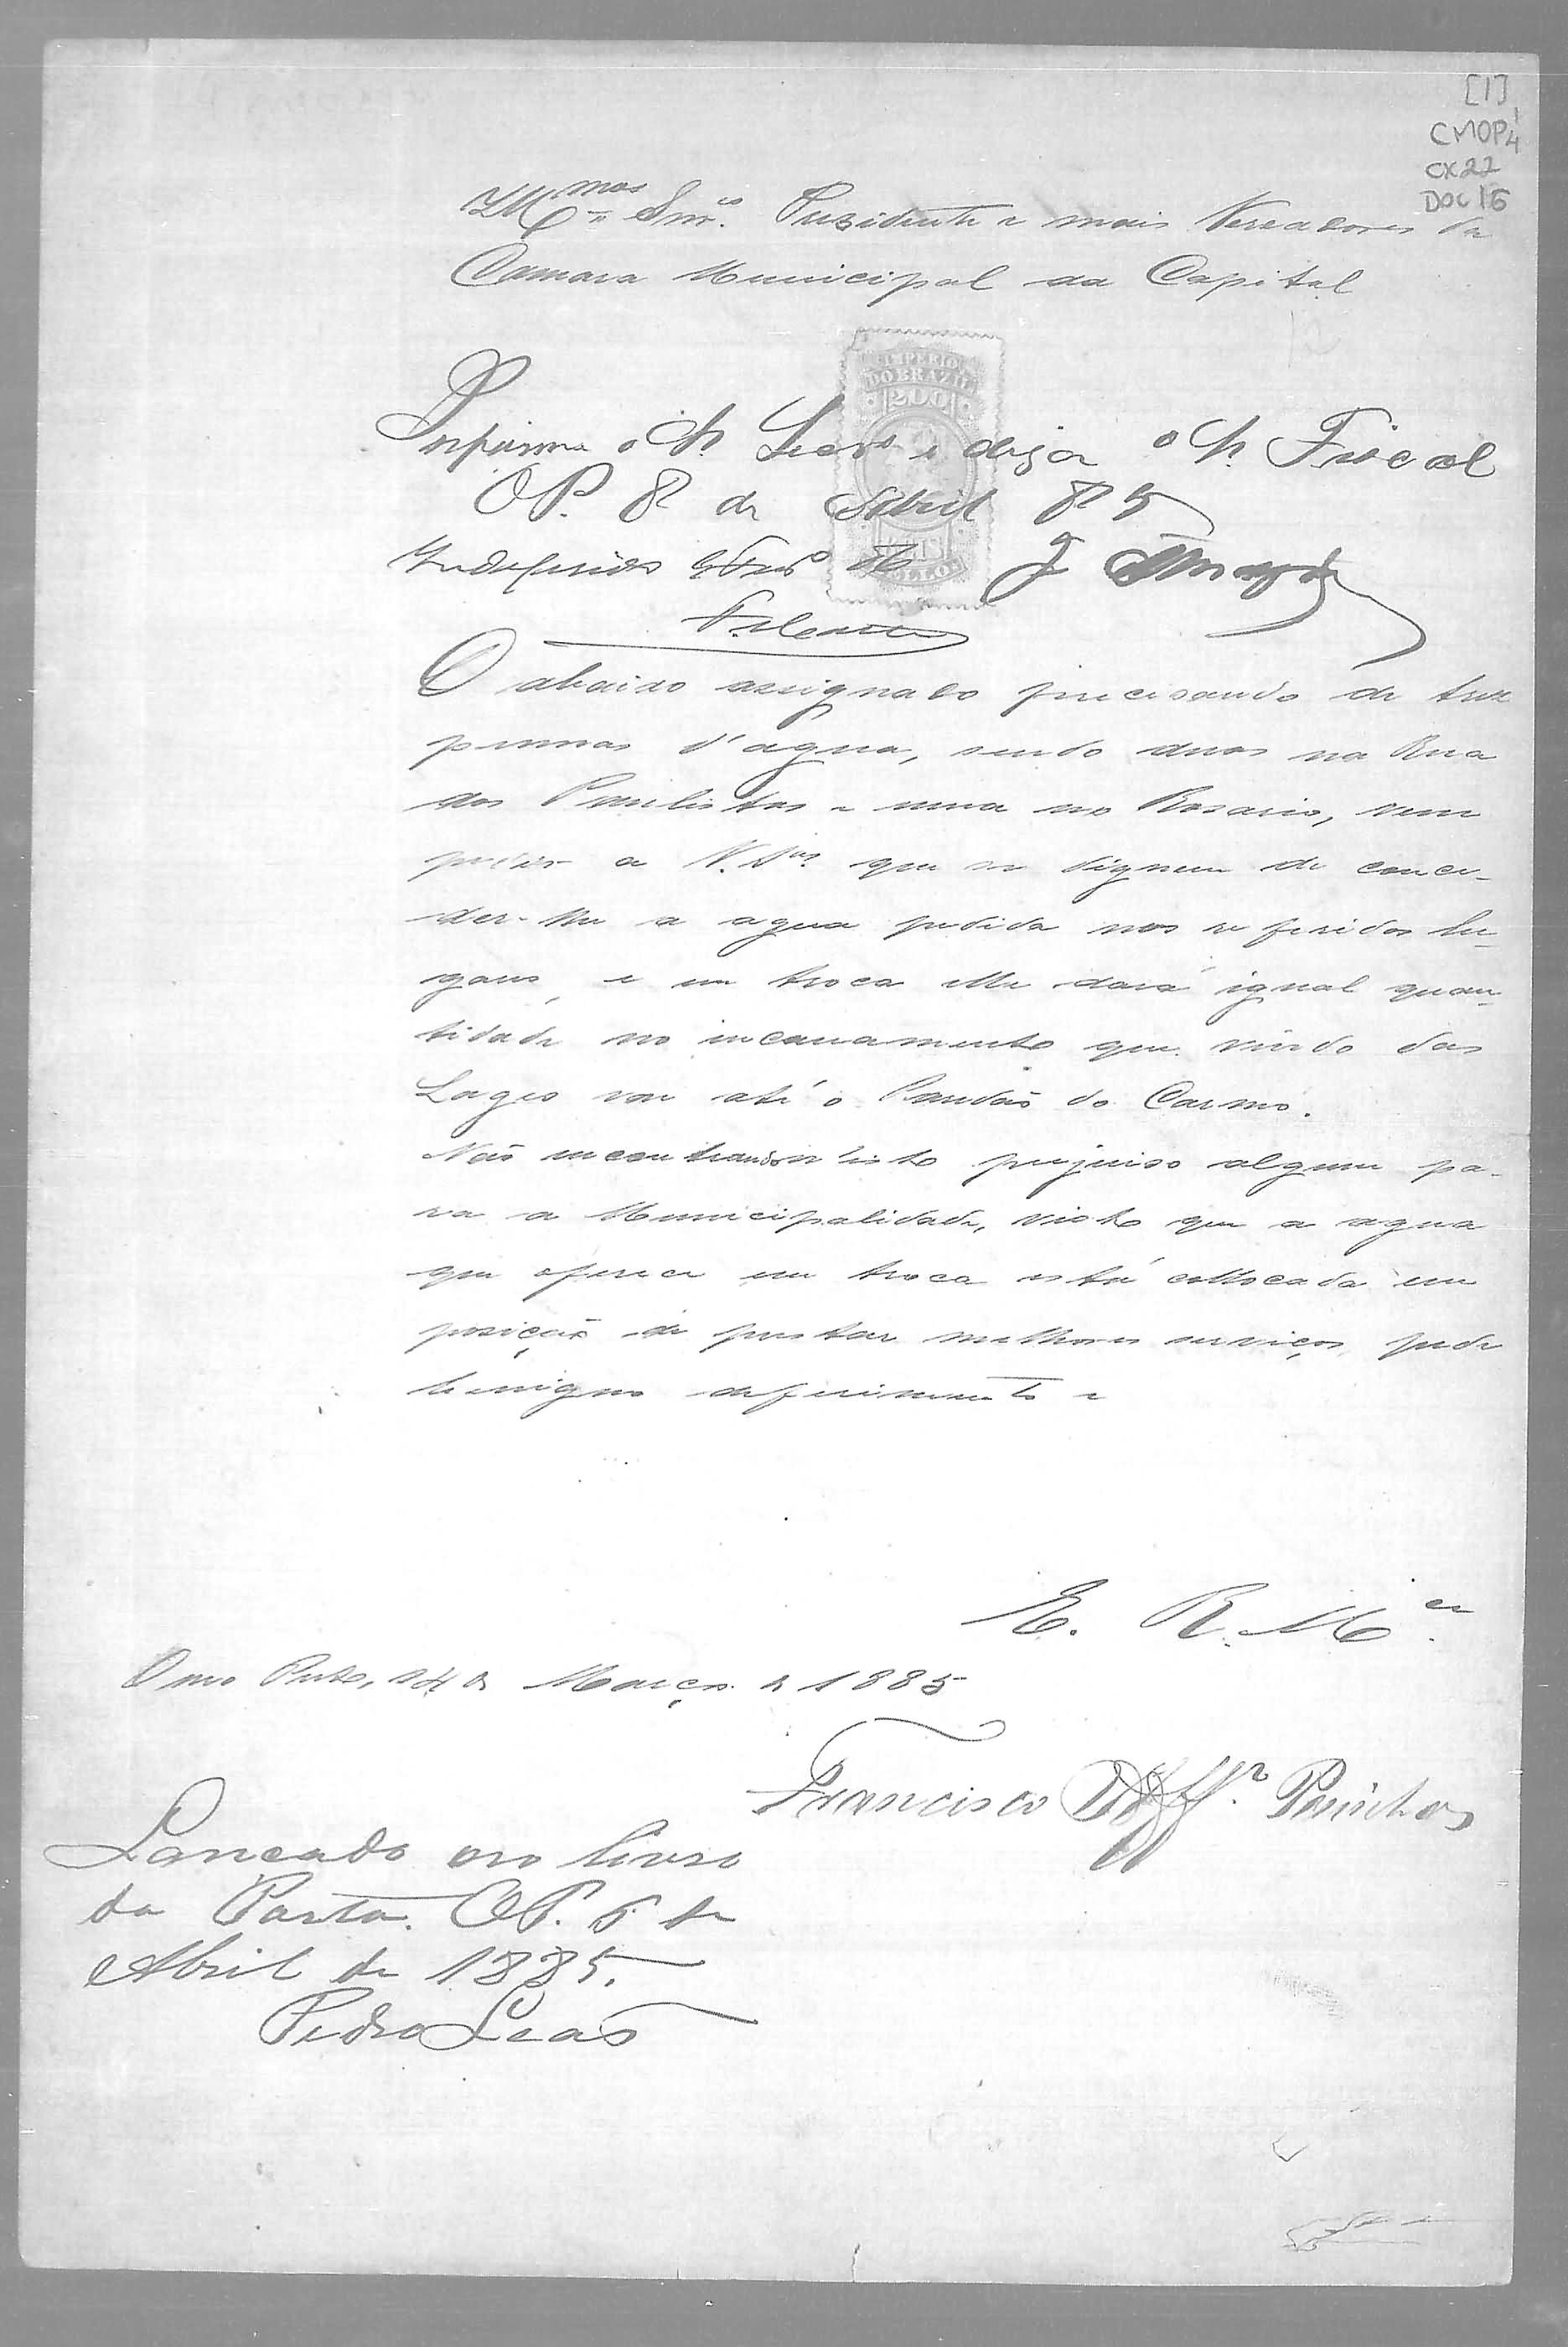 [1]
CMOP 4
CX 22
DOC 16
Ill.mos Snr.es Presidente e mais Vereadores da
Camara Municipal da Capital
IMPERIO
DO BRAZIL
200
REIS
SELLO
Informe o Sr. Secro e diga o Sr. Fiscal
OP. 8 de Abril 85
Indeferido
O abaixo assignado precisando de tres
pennas d'agua, sendo duas na Rua
dos Paulistas e uma no Rosario, vem
pedir a V. Sas. que se dignem de conce-
der-lhe a agua pedida nos referidos lu-
gares, e em troca elle dará igual quan-
tidade no incanamento que vindo das
Lages vai até o Pardão do Carmo.
Não encontrando n'isto prejuiso algum pa-
ra a Municipalidade, visto que a agua
que oferece em troca está collocada em
posição de prestar melhores serviços pede
benigno deferimento e
E. R. M.ce
Ouro Preto, 24 de Março de 1885
Francisco
Lancado no livro
da Porta. OP. 6 de
Abril de 1885.
Pedro Leão